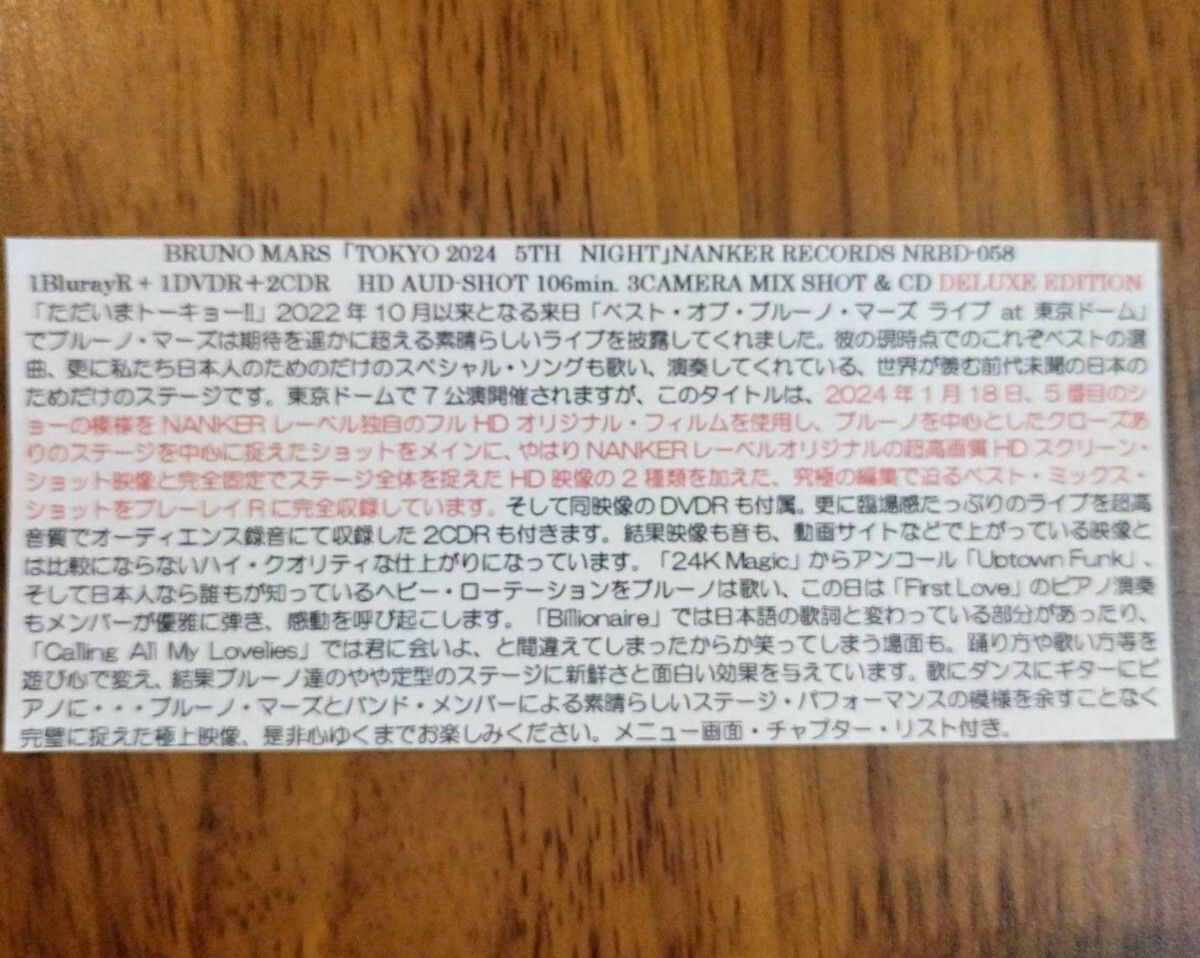 BRUNO MARS「TOKYO 2024 5TH NIGHT」NANKER RECORDS NRBD-058
1BlurayR + 1DVDR+2CDR HD AUD-SHOT 106min. 3CAMERA MIX SHOT & CD DELUXE EDITION
「ただいまトーキョー!!」2022年10月以来となる来日「ベスト・オブ・ブルーノ・マーズ ライブ at 東京ドーム」
でブルーノ・マーズは期待を遥かに超える素晴らしいライブを披露してくれました。彼の現時点でのこれぞベストの選
曲、更に私たち日本人のためのだけのスペシャル・ソングも歌い、演奏してくれている、世界が羨む前代未聞の日本の
ためだけのステージです。東京ドームで7公演開催されますが、このタイトルは、2024年1月18日、5番目のシ
ョーの模様をNANKERレーベル独自のフルHDオリジナル・フィルムを使用し、ブルーノを中心としたクローズあ
りのステージを中心に捉えたショットをメインに、やはりNANKERレーベルオリジナルの超高画質HDスクリーン・
ショット映像と完全固定でステージ全体を捉えたHD映像の2種類を加えた、究極の編集で迫るベスト・ミックス・
ショットをブルーレイRに完全収録しています。そして同映像のDVDRも付属。更に臨場感たっぷりのライブを超高
音質でオーディエンス録音にて収録した2CDRも付きます。結果映像も音も、動画サイトなどで上がっている映像と
は比較にならないハイ・クオリティな仕上がりになっています。「24K Magic」からアンコール「Uptown Funk」、
そして日本人なら誰もが知っているヘビー・ローテーションをブルーノは歌い、この日は「First Love」のピアノ演奏
もメンバーが優雅に弾き、感動を呼び起こします。「Billionaire」では日本語の歌詞と変わっている部分があったり、
「Calling All My Lovelies」では君に会いよ、と間違えてしまったからか笑ってしまう場面も。踊り方や歌い方等を
遊び心で変え、結果ブルーノ達のやや定型のステージに新鮮さと面白い効果を与えています。歌にダンスにギターにピ
アノに・・・ブルーノ・マーズとバンド・メンバーによる素晴らしいステージ・パフォーマンスの模様を余すことなく
完璧に捉えた極上映像、是非心ゆくまでお楽しみください。メニュー画面・チャプター・リスト付き。